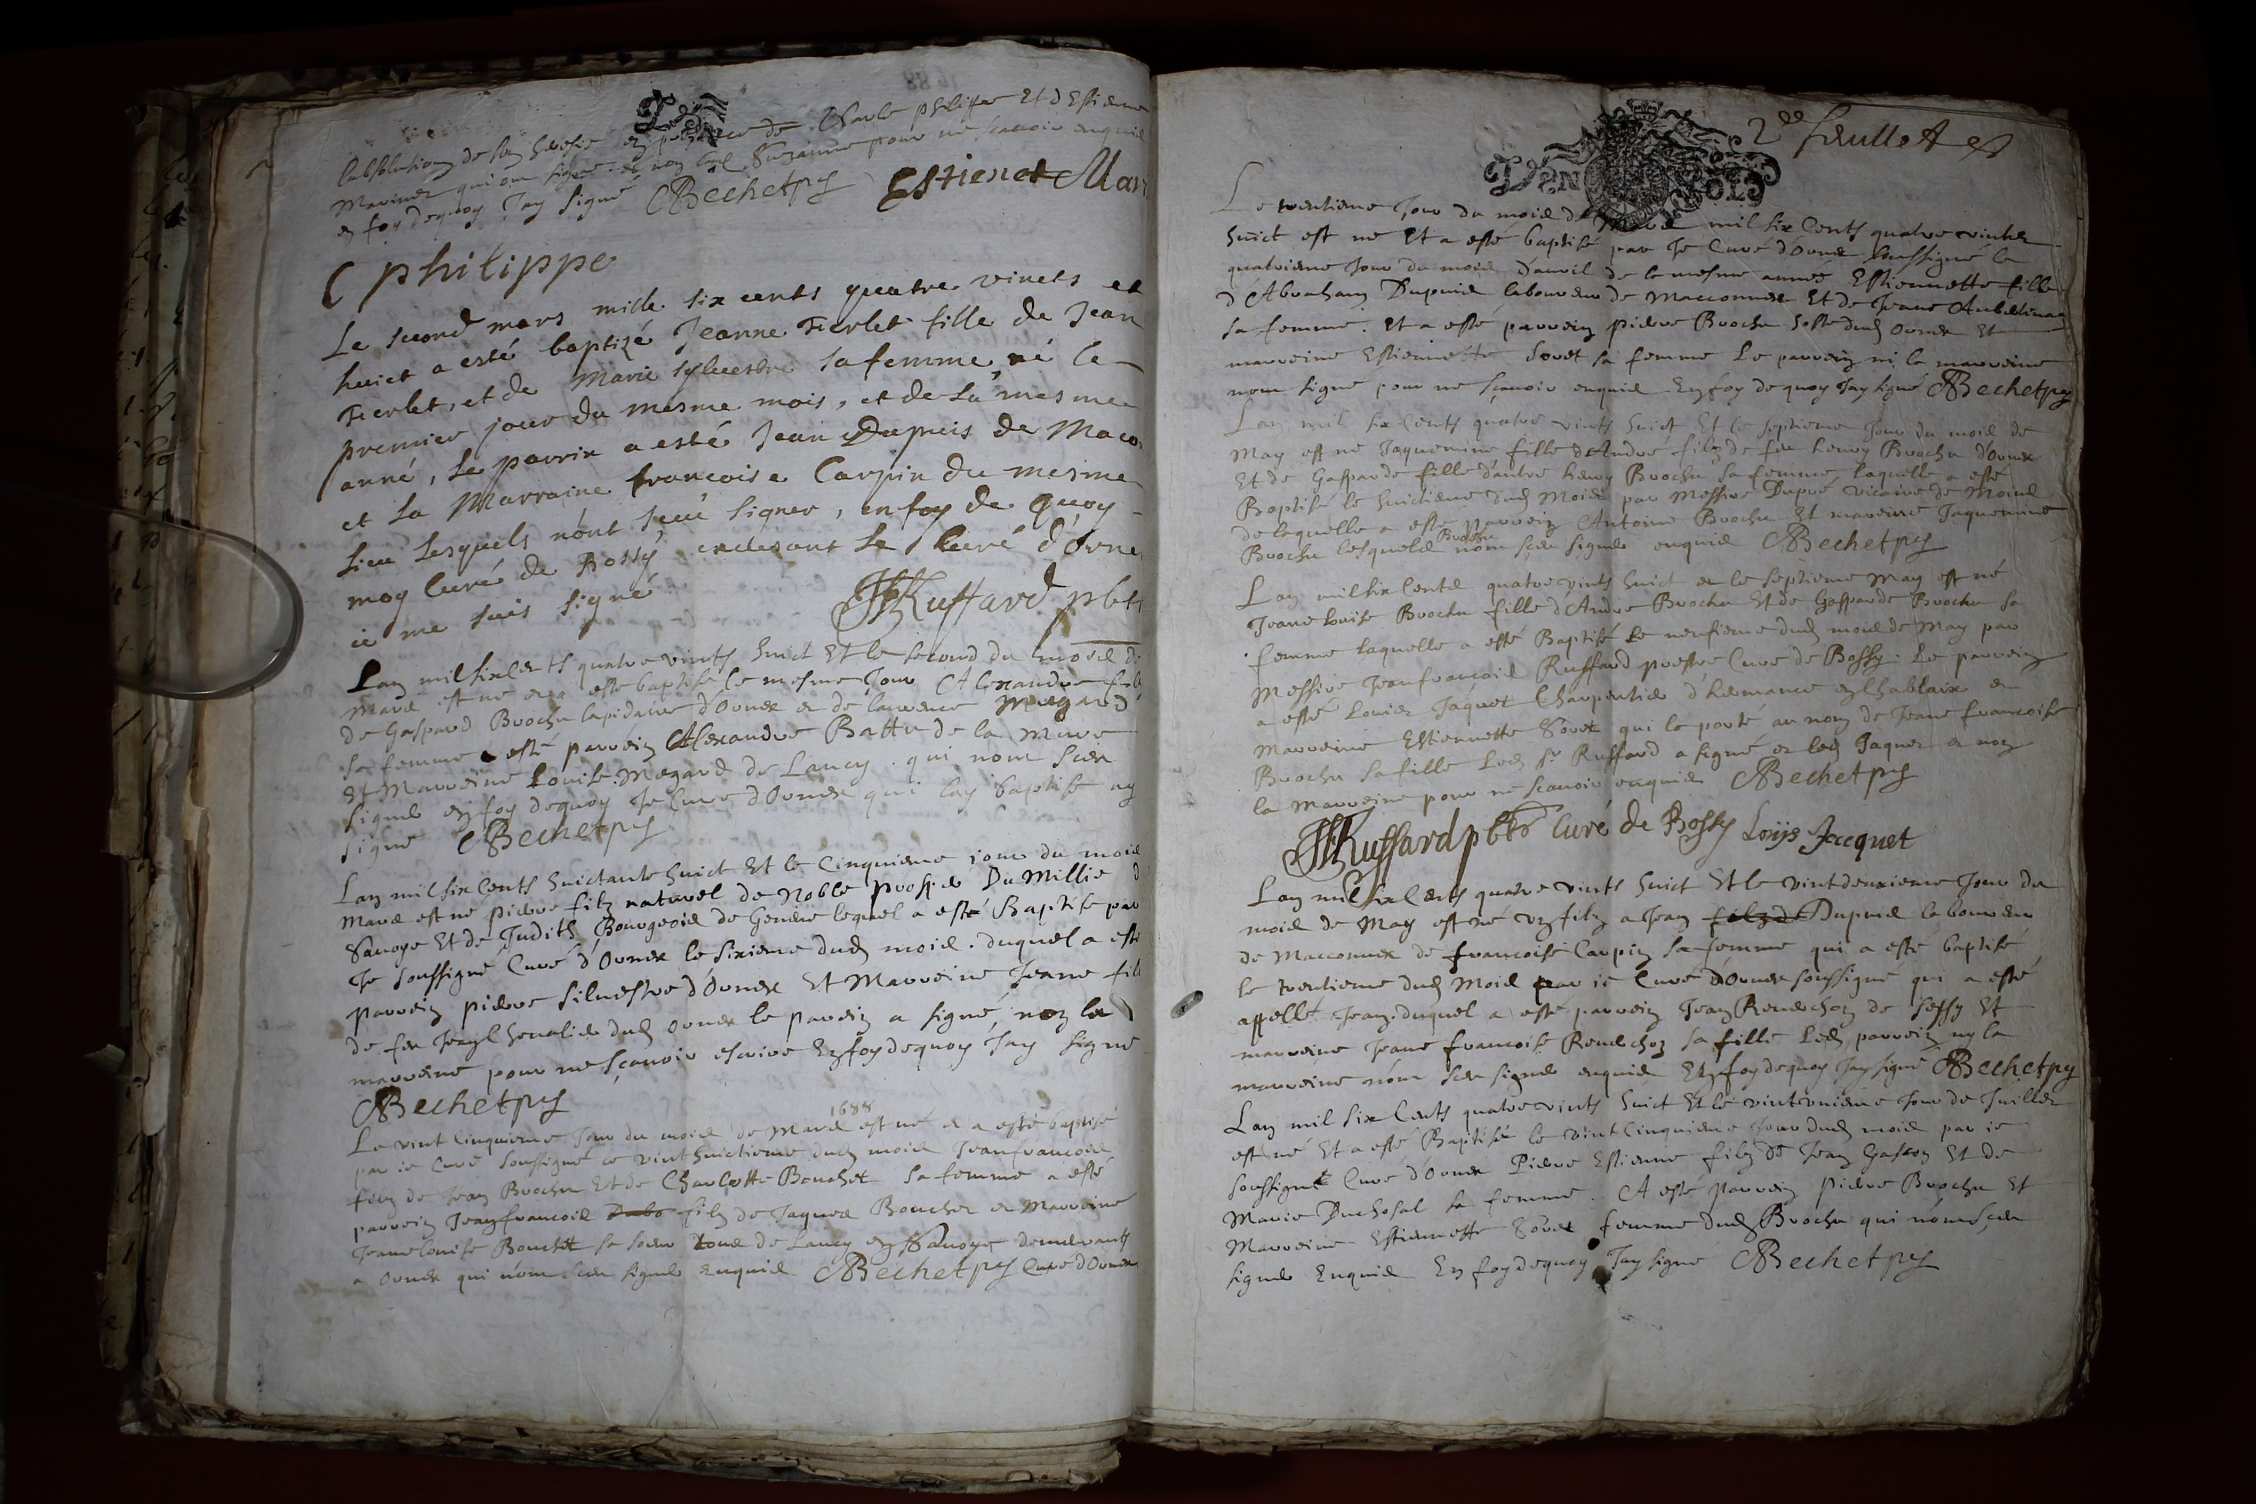 l'absolution de son heresie en presence de Charle philippe Et d Estienne
Marinet qui on signé et non lad Suzanne pour ne scavoir enquis
en foy dequoy Jay signé CBechet ps Estienet Mar
C philippe
Le second mars mille six cents quatre vincts et
huict a esté baptizé Jeanne Fierlet fille de Jean
Fierlet, et de Marie sylvestre sa femme, né le
premier jour du mesme mois, et de la mesme
anné, Le parrin a esté Jean Dupuis de Maco
et la Marraine francoise Carpin du mesme
lieu Lesquels n'ont sceu signer, en foy de quoy
moy Curé de Bossy exersant le Curé d'Orne
ie me suis signé
JFRuffard pbts
Lan mil six cents quatre vints huict Et le second du mois de
Mars est ne et a esté baptisé le mesme Jour Alexandre fils
de Gaspard Brochu lapidaire d'Ornex et de laurence Megard
sa femme a esté parrein Alexandre Battu de la Mure
Et Marreine Louise Megard de Lancy . qui nont sceu
signer en foy dequoy Je Curé d'Ornex qui lay baptisé ay
signé CBechet ps
Lan mil six Cents huictante huict Et le Cinquieme jour du mois
Mars est né pierre filz naturel de Noble prosper Du Millie d
Savoye Et de Judith Bourgeois de Geneve lequel a esté Baptisé par
Je soussigné Curé d'Ornex le sixieme dud mois . duquel a esté
parrein pierre silvestre d'Ornex Et Marreine Jeanne fill
de feu Jean Chevalier dud Ornex le parrein a signé, non la
marreine pour ne sçavoir escrire En foy dequoy Jay signe
CBechet ps
1688
Le vint Cinquieme Jour du mois de Mars est né et a esté baptisé
par ie Curé soussigné le vint huictieme dud mois Jeanfrancois
filz de Jean Brochu Et de Charlotte Bouchet sa femme a esté
parrein Jeanfrancois filz de Jaques Bouchet et Marreine
Jeanne louise Bouchet sa soeur tous de Lancy en Savoye demeurants
a Ornex qui n'ont sceu signer enquis CBechet ps Curé d'Ornex
2de feullet
Le trentieme Jour du mois de Mars mil six Cents quatre vints
huict est ne Et a esté baptisé par Je Curé d'Ornex soussigné le
quatrieme Jour du mois d'avril de la mesme année Estiennette fille
d'Abraham Dupuis laboureur de Macconnex Et de Jeane
sa femme . Et a esté parrein pierre Brochu hoste dud Ornex Et
marreine Estiennette Sovet sa femme Le parrein ni la marreine
nont signé pour ne sçavoir enquis En foy de quoy Jay signé CBechet ps
Lan mil six Cents quatre vints huict Et le septieme Jour du mois de
May est ne Jaquemine fille d'Andre filz de feu henry Brochu d'Ornex
Et de Gasparde fille d'autre henry Brochu sa femme laquelle a esté
Baptisé le huictieme dud Mois par Messire Dupré vicaire de Moins
de laquelle a esté parrein Antoine Brochu Et marreine Jaquemine
Brochu
Brochu lesquels nont sceu signer enquis CBechet ps
Lan mil six Cents quatre vints huict et le septieme May est né
Jeane louise Brochu fille d'Andre Brochu Et de Gasparde Brochu sa
femme laquelle a esté Baptisé le neufieme dud mois de May par
Messire Jeanfrancois Ruffard prestre Curé de Bossy . Le parrein
a esté Louis Jaquet Charpentier d'hermance en Chablaix et
Marreine Estiennette Sovet qui le porte au nom de Jeane francoise
Brochu sa fille Led sr Ruffard a signé et led Jaquet et non
la Marreine pour ne scavoir enquis CBechet ps
JFRuffard pbts Curé de Bossy Loijs Jacquet
Lan mil six Cents quatre vints huict Et le vintdeuxieme Jour du
mois de May est né un filz a Jean filz de Dupuis laboureur
de Macconnex de francoise Carpin sa femme qui a esté baptisé
le trentieme dud Mois par ie Curé d'Ornex soussigné qui a esté
appellé Jean . duquel a esté parrein Jean Roudchoz de sessy Et
marreine Jeane francoise Roudchoz sa fille Led parrein ny la
marreine n'ont sceu signer enquis En foy dequoy Jay signé CBechet ps
Lan mil six Cents quatre vints huict Et le vintunieme Jour de Juillet
est né Et a esté Baptisé le vint Cinquieme Jour dud mois par ie
soussigné Curé d'Ornex Pierre Estienne filz de Jean Gascon Et de
Marie Duchosal sa femme . A esté parrein pierre Brochu Et
Marreine Estiennette Sovet femme dud Brochu qui n'ont sceu
signer Enquis En foy dequoy Jay signé CBechet ps